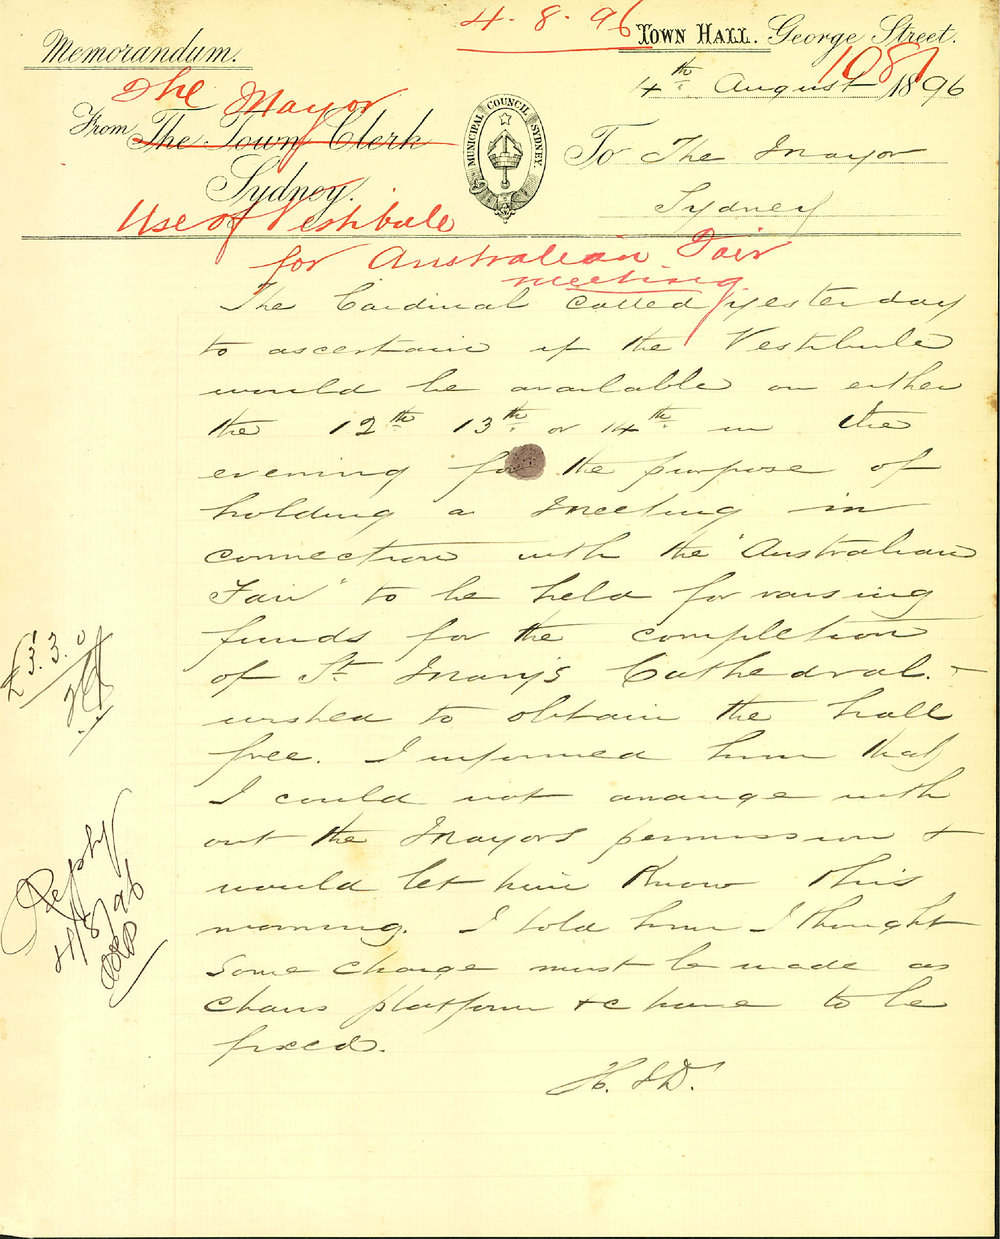 4.8.96
Memorandum.
TOWN HALL. George Street.
1087
4th August 1896
The Mayor
From The Town Clerk
Sydney.
MUNICIPAL COUNCIL SYDNEY.
To The Mayor
Sydney
Use of Vestibule
for Australian Fair
meeting
The Cardinal called yesterday
to ascertain if the Vestibule
would be available on either
the 12th 13th or 14th in the
evening for the purpose of
holding a Meeting in
connection with the "Australian
Fair" to be held for raising
funds for the completion
of St Mary's Cathedral. -
wished to obtain the hall
free. I informed him that
I could not arrange with
out the Mayors permission &
would let him know this
morning. I told him I thought
some charge must be made as
chairs platform &c have to be
fixed.
£3.3.0
Reply
4/8/96